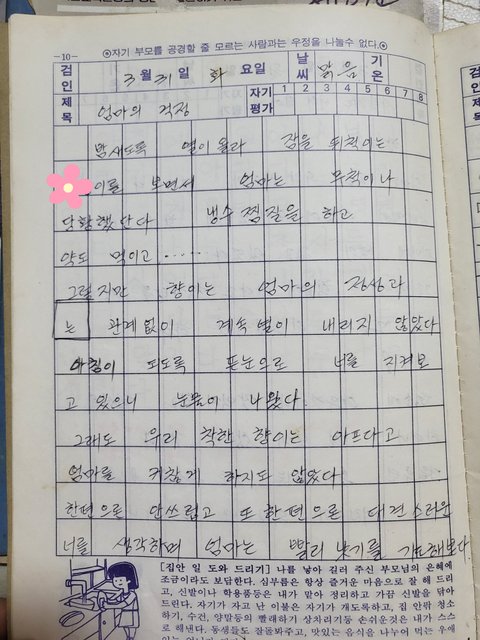 -10- ◎자기 부모를 공경할 줄 모르는 사람과는 우정을 나눌수 없다.◎
검인 3월 31일 화요일 날씨 맑음 기온
제목 엄마의 걱정 자기평가 1 2 3 4 5 6 7 8
밤새도록 열이 올라 잠을 뒤척이는
이를 보면서 엄마는 무척이나
당황했단다 냉수 찜질을 하고
약도 먹이고……
그렇지만 향이는 엄마의 정성과
는 관계없이 계속 열이 내리지 않았다
아침이 되도록 뜬눈으로 너를 지켜보
고 있으니 눈물이 나왔다.
그래도 우리 착한 향이는 아프다고
엄마를 귀찮게 하지도 않았다
한편으론 안쓰럽고 또 한편으론 대견스러운
너를 생각하며 엄마는 빨리 낫기를 기도해본다
[집안 일 도와 드리기] 나를 낳아 길러 주신 부모님의 은혜에
조금이라도 보답한다. 심부름은 항상 즐거운 마음으로 잘 해 드리
고, 신발이나 학용품등은 내가 맡아 정리하고 가끔 신발을 닦아
드린다. 자기가 자고 난 이불은 자기가 개도록하고, 집 안팎 청소
하기, 수건, 양말등의 빨래하기 상차리기등 손쉬운것은 내가 스스
로 해낸다. 동생들도 잘돌봐주고, 맛있는 음식은 나누어 먹는 우애